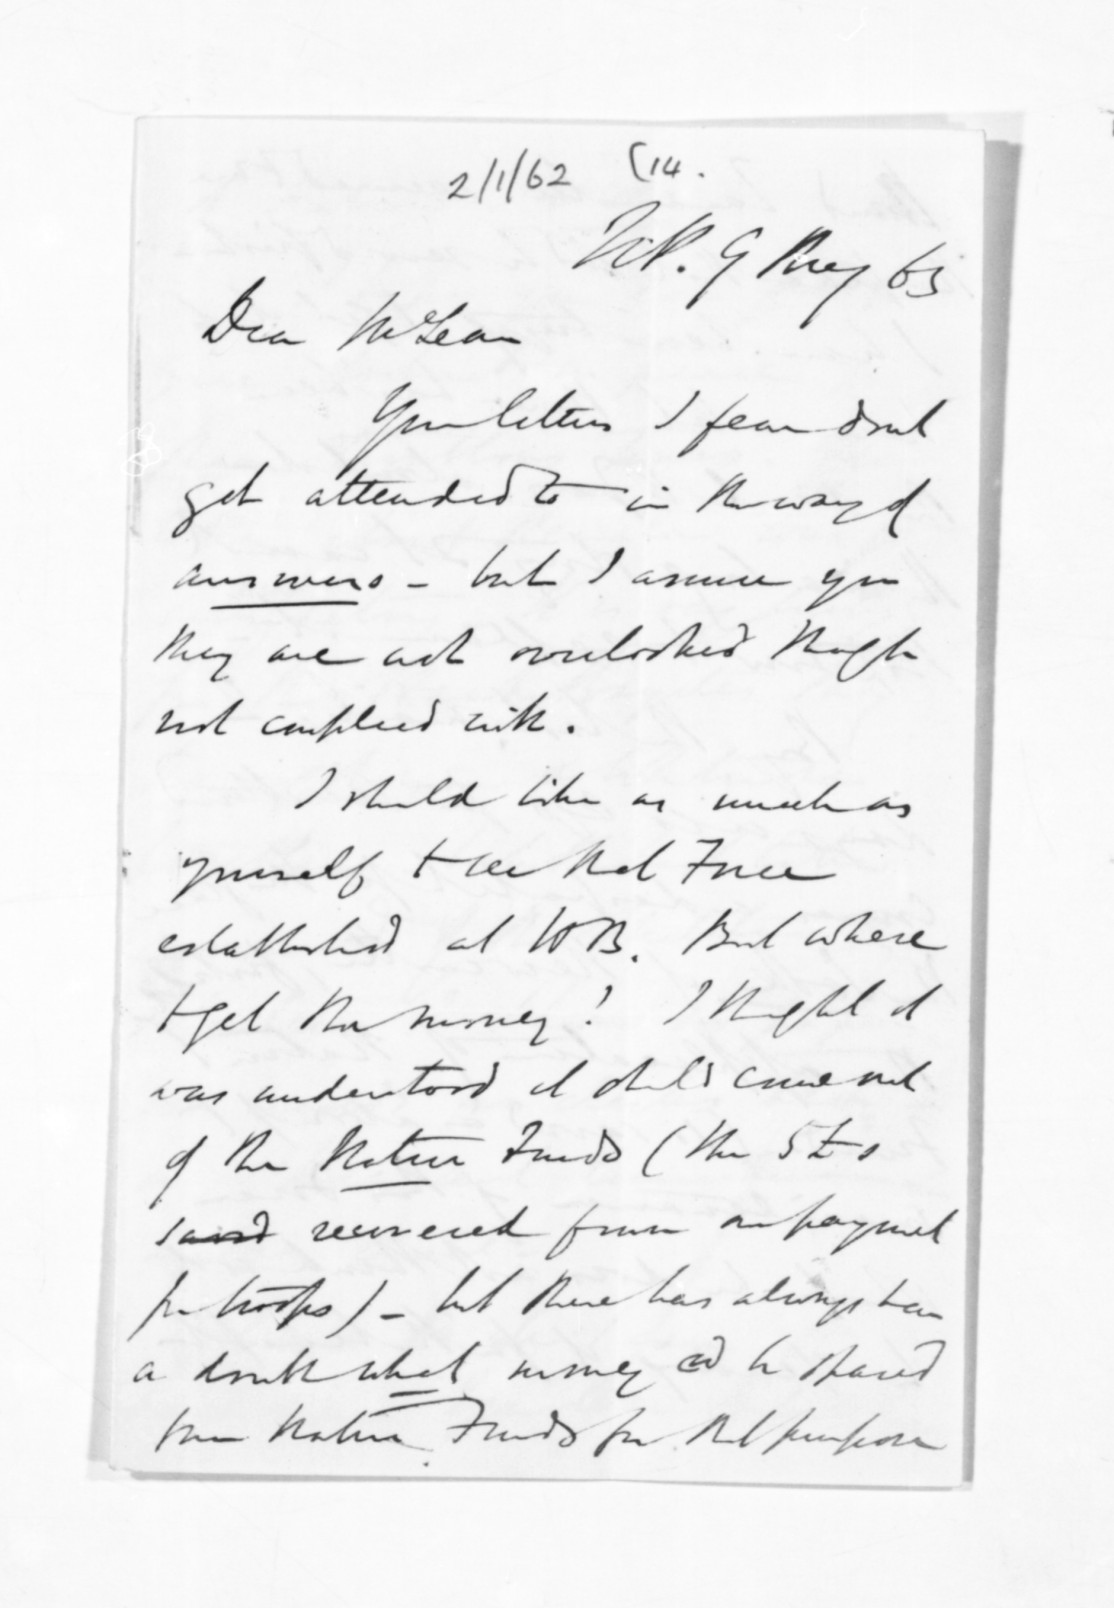 2/1/62 (14.
9 May 63
Dear McLean
Your letters I fear don't
get attended to in the way of
answers - but I assure you
they are not overlooked though
not complied with.
I should like as much as
yourself to see that Force
established at HB. But where
to get the money! I thought it
was understood it should come out
of the Native Funds (the 5£s
saved recovered from our payment
for troops) - but there has always been
a doubt what money cd be spared
from Native Funds for that purpose